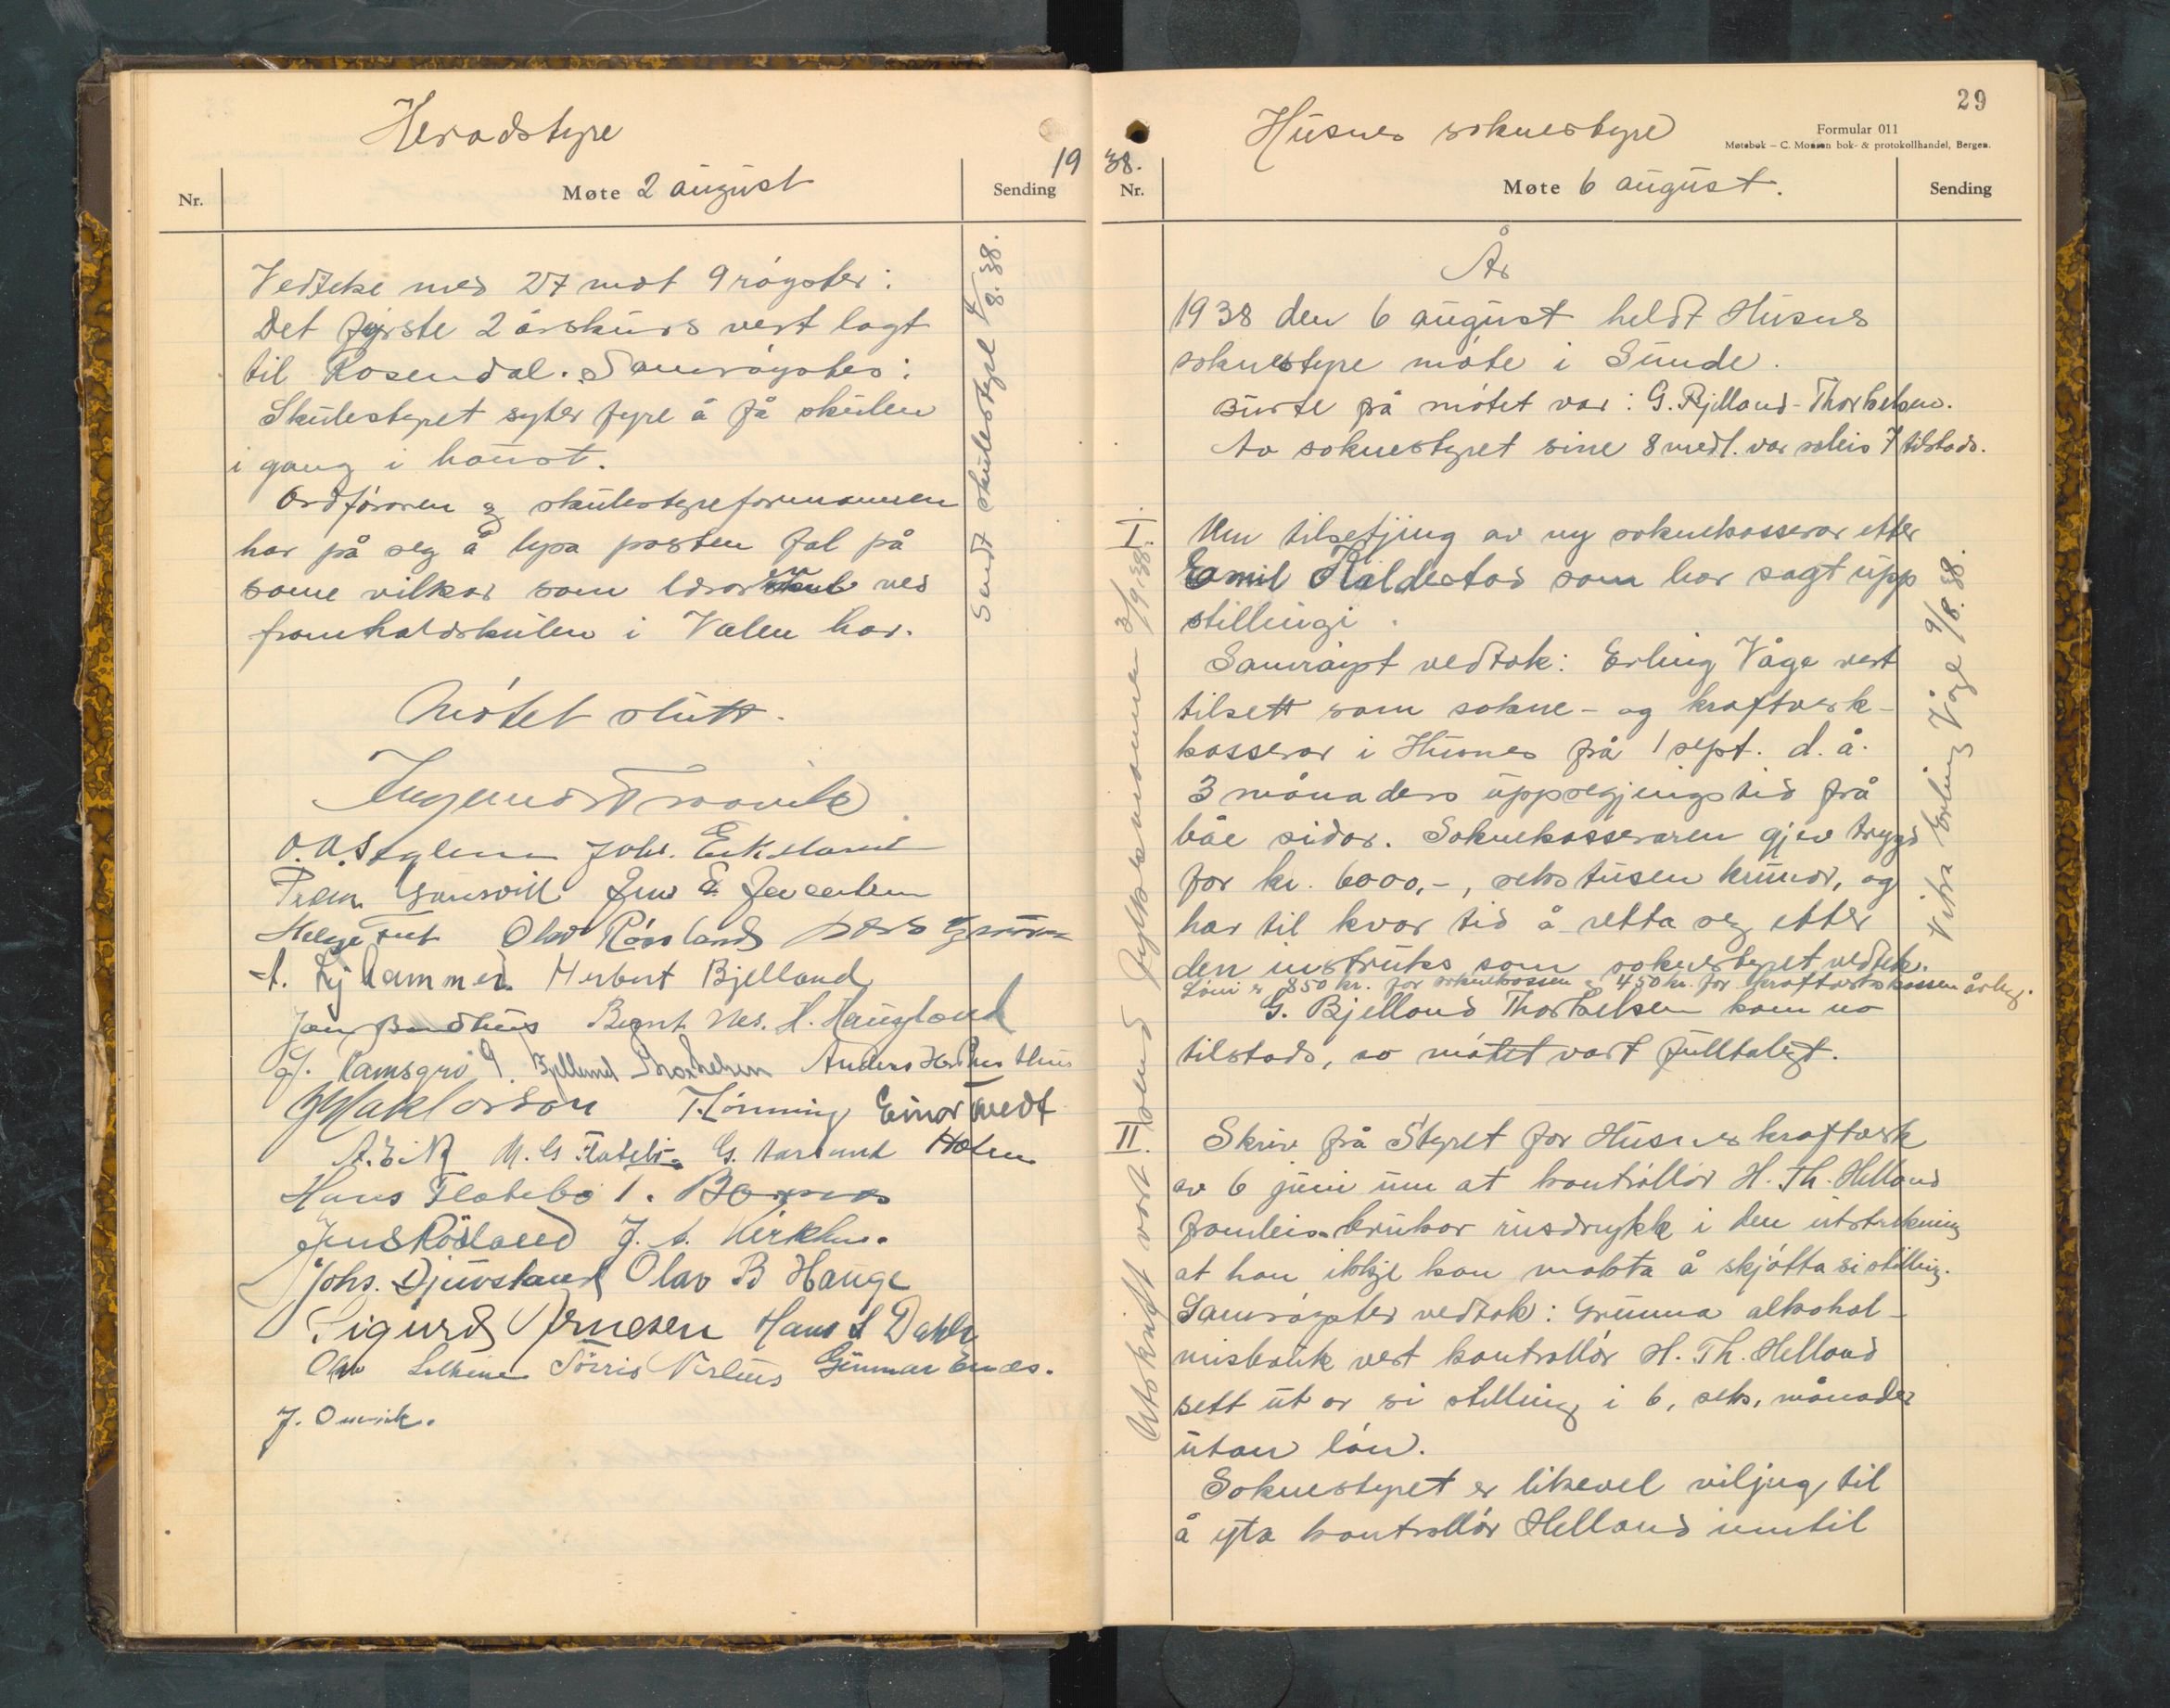 Heradstyre
19
Nr.
Møte 2 august
Sending
Vedteke med 27 mot 9 røyster:
Det fyrste 2 årskurs vert lagt
til Rosendal. Samrøystes:
Skulestyret syter fyre å få skulen
i gang i haust.
Ordføraren og skulestyreformannen
har på seg å lysa posten fal på
same vilkor som lærar ved
framhaldskulen i Valen har.
Sendt skulestyret 4/8.38.
Møtet slutt.
Johs. Eikeland
Helge Tvet Olav Røssland
Herbert Bjelland
Bernt Nes. H. Haugland
J. Kamsgrø G. Bjelland Thorkelsen Anders H. Punthus
Haktorson T. Lønning Einar Tvedt
M. G. Flatebø
Hans Flatebø
Jens Røsland
Johs. Djuvsland Olav B Hauge
Sigurd Arnesen Hans S Dahle
Gunnar Enæs.
J. Omvik.
29
Husnes soknestyre
Formular 011
Møtebok – C. Monsen bok- & protokollhandel, Bergen.
38.
Nr.
Møte 6 august.
Sending
År
1938 den 6 august heldt Husnes
soknestyre møte i Sunde.
Burte på møtet var: G. Bjelland-Thorkelsen.
Av soknestyret sine 8 medl. var soleis 7 tilstads.
I. Um tilsetjing av ny soknekasserar etter
Emil Kaldestad som har sagt upp
stillingi.
Samrøyst vedtok: Erling Våge vert
tilsett som sokne- og kraftverk-
kasserar i Husnes frå 1 sept. d. å.
3 månaders uppsegjingstid frå
båe sidor. Soknekasseraren gjev trygd
for kr. 6000,-, seks tusen krunor, og
har til kvar tid å retta seg etter
den instruks som soknestyret vedtek.
Løni er 850 kr. for soknekassen og 450 kr. for kraftverkskassen årleg.
G. Bjelland Thorkelsen kom no
tilstads, so møtet vart fulltaligt.
Vitra Erling Våge 9/8.38.
Utskrift vart send fylkesmannen 3/9.38.
II. Skriv frå Styret for Husnes kraftverk
av 6 juni um at kontrollør H. Th. Helland
framleis brukar rusdrykk i den utstrekning
at han ikkje kan makta å skjøtta si stilling.
Samrøystes vedtok: Grunna alkohol-
misbruk vert kontrollør H. Th. Helland
sett ut or si stilling i 6, seks, månader
utan løn.
Soknestyret er likevel viljug til
å yta kontrollør Helland inntil